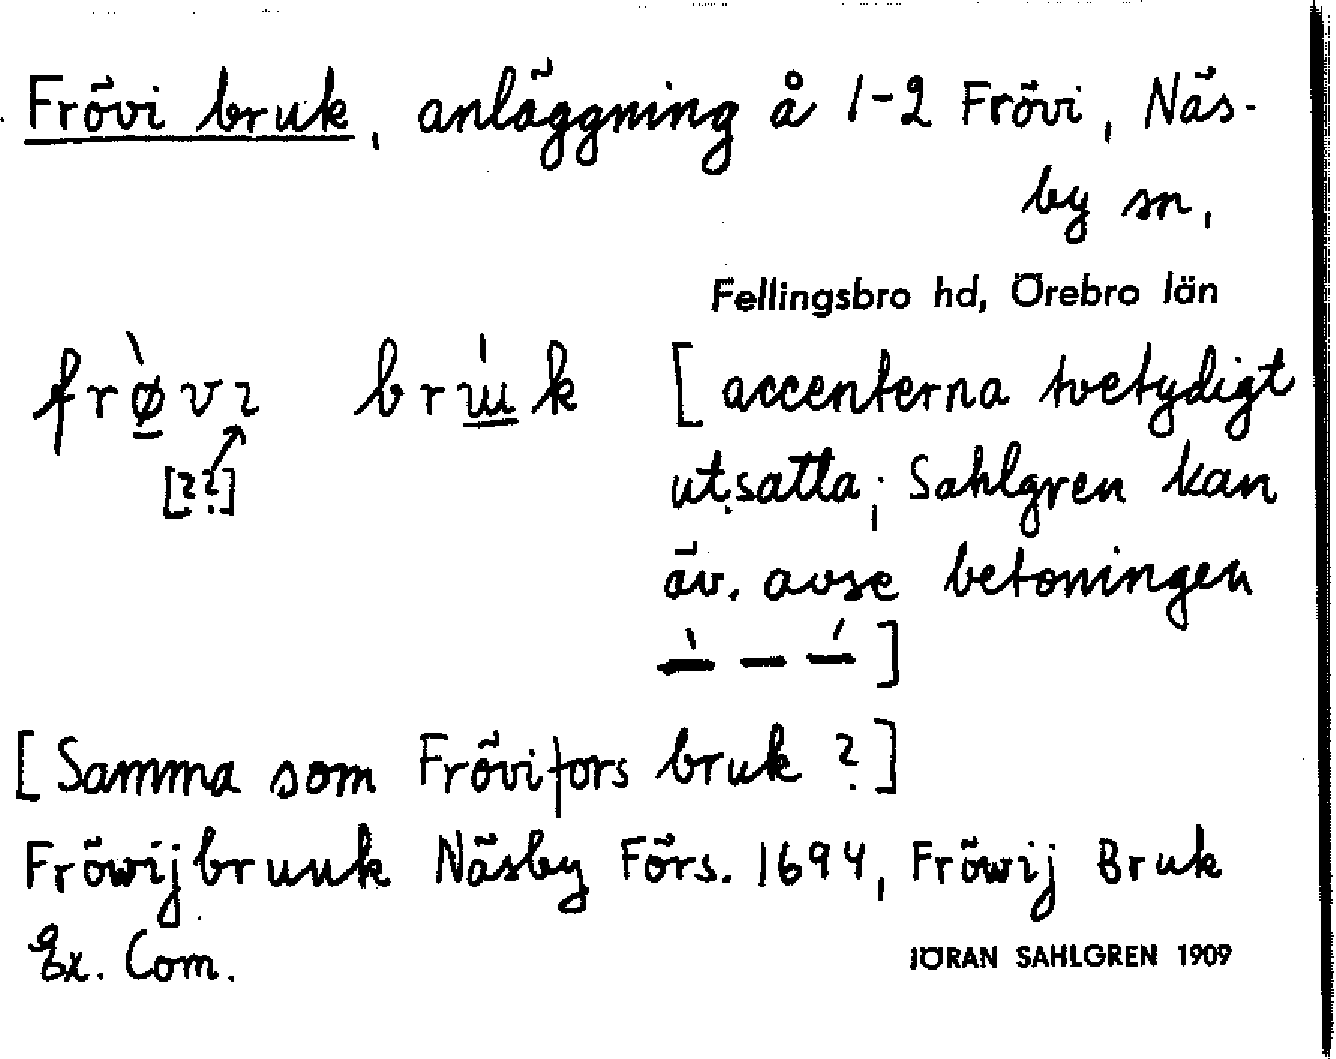 Frövi bruk, anläggning å 1-2 Frövi, Näs-
by sn,
Fellingsbro hd, Örebro län
frø̀vı brɯ́k [accenterna tvetydigt
[??] utsatta; Sahlgren kan
äv. avse betoningen
̀— — ́—]
[Samma som Frövifors bruk ?]
Fröwijbruuk Näsby Förs. 1694, Fröwij Bruk
Ex. Com.
JÖRAN SAHLGREN 1909